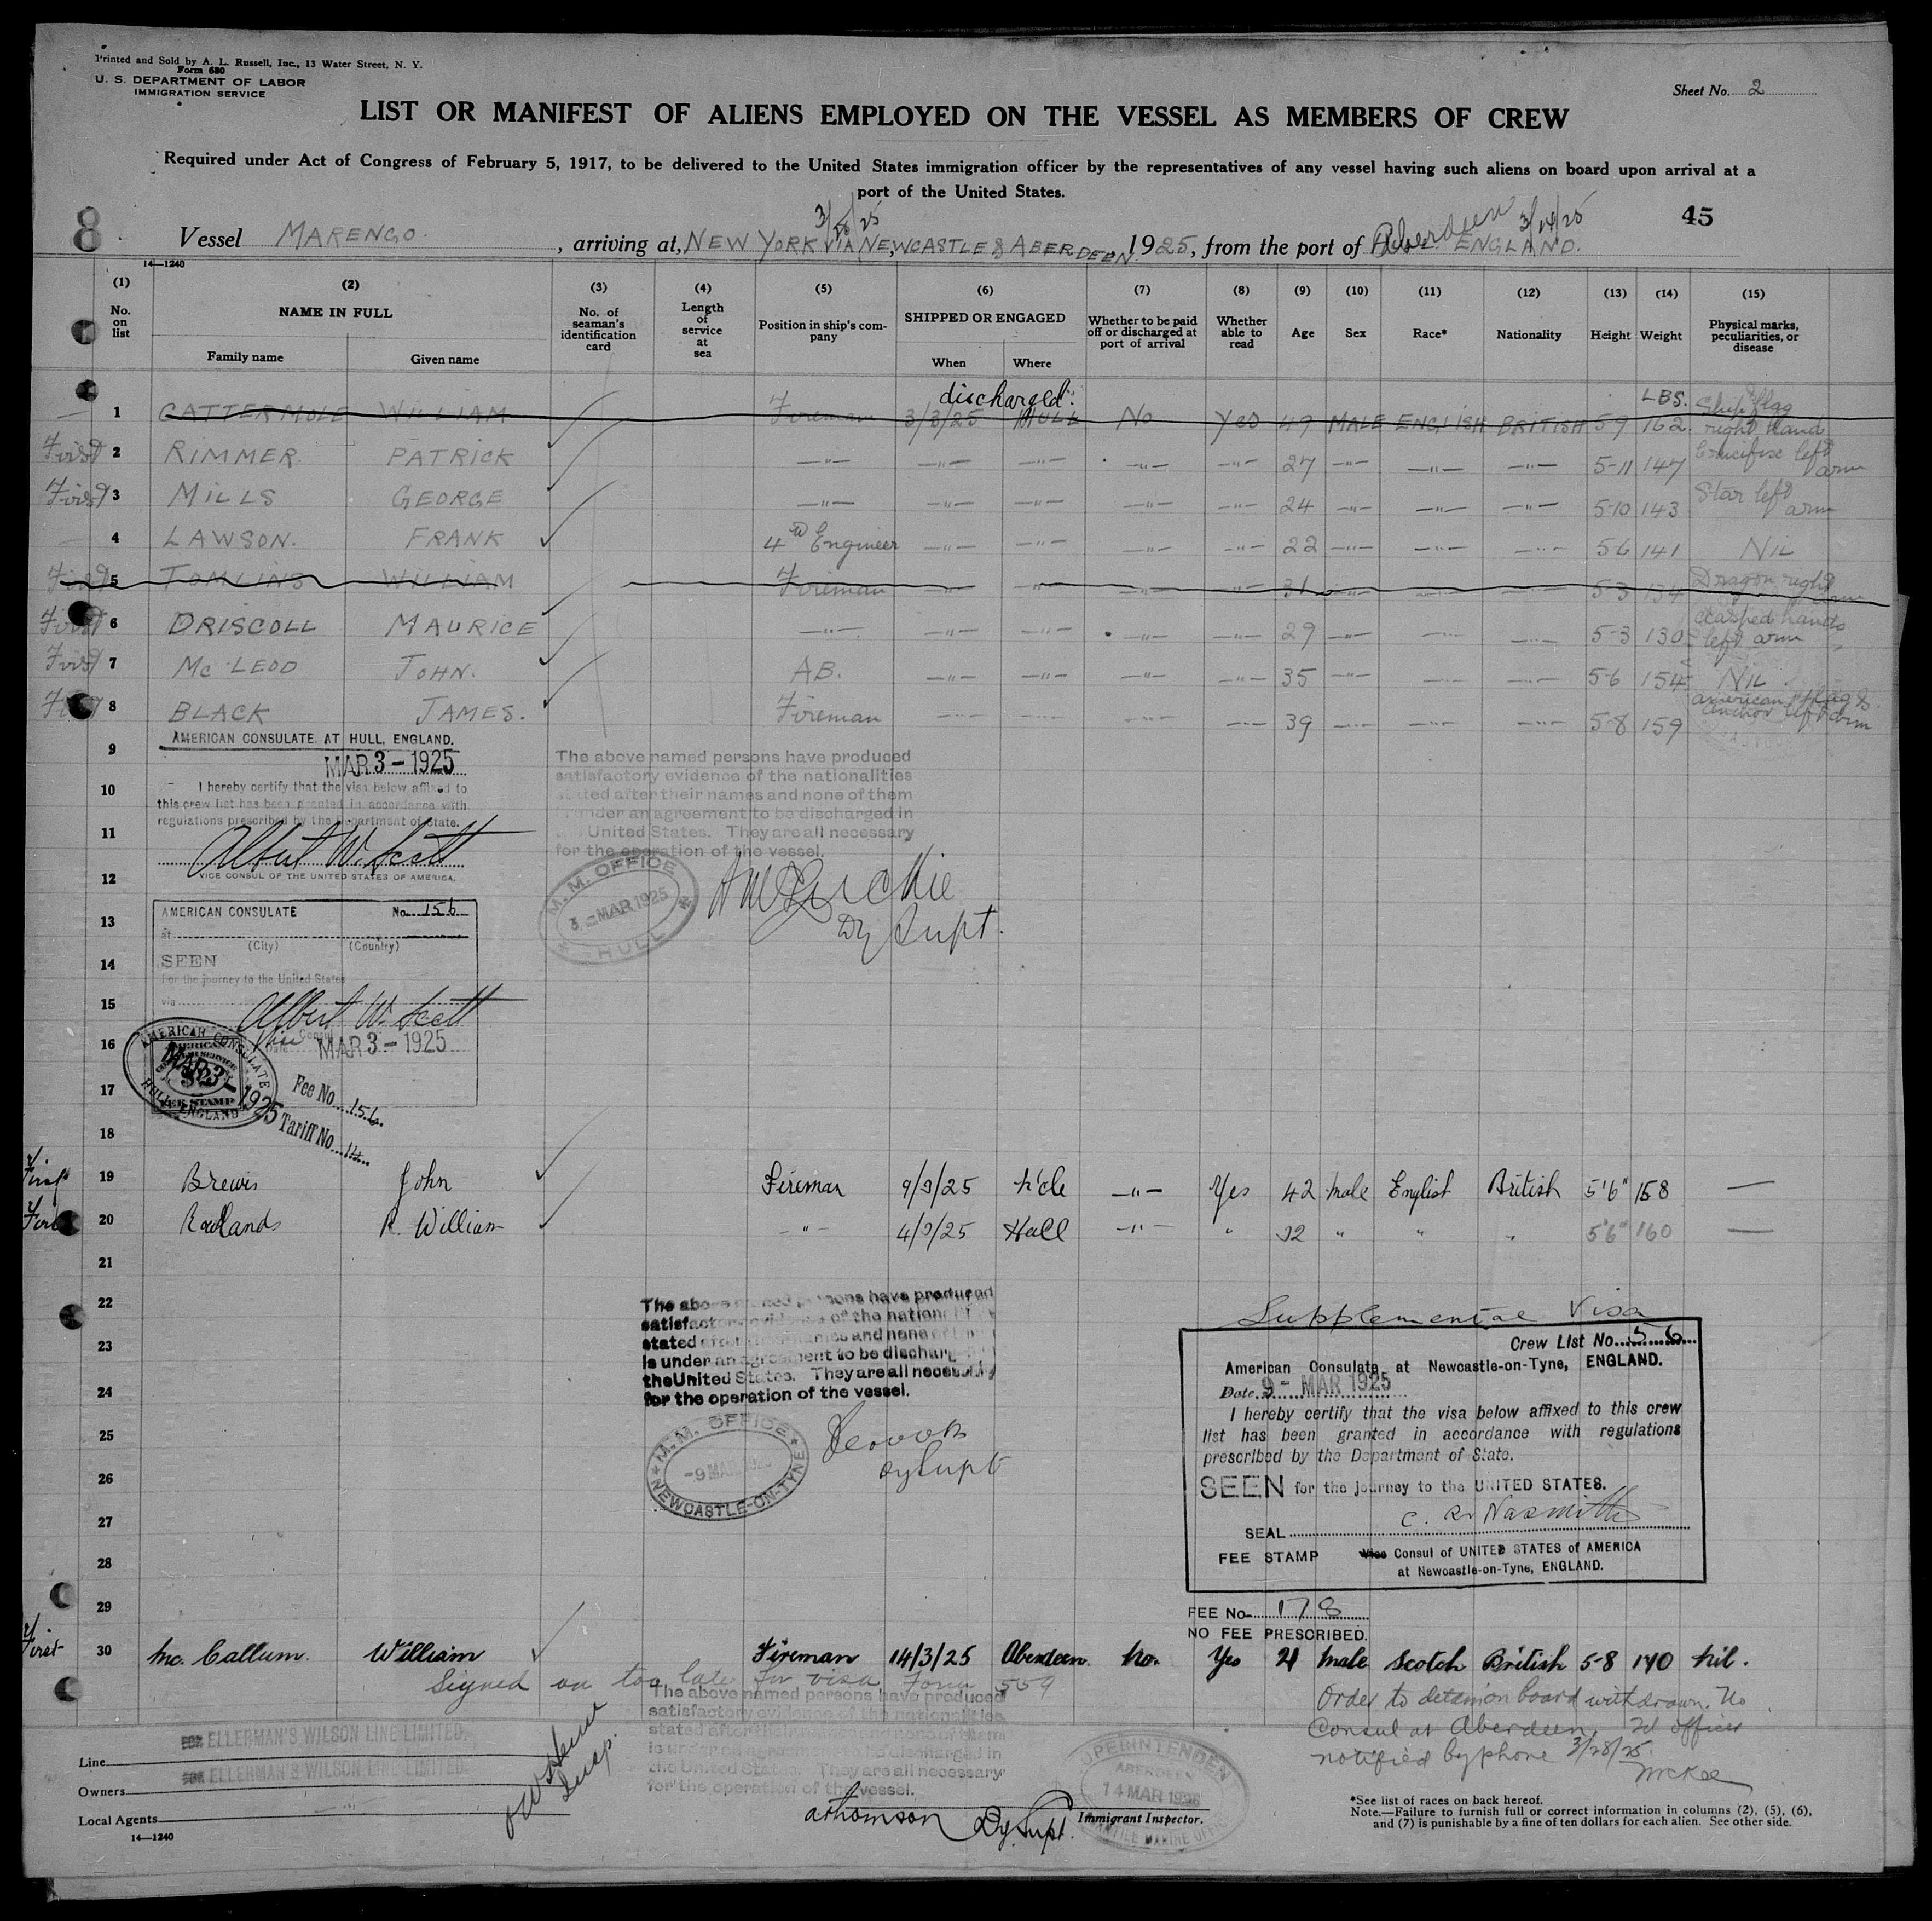 Printed and Sold by A. L. Russell, Inc., 13 Water Street, N. Y.
Form 680
U. S. DEPARTMENT OF LABOR
IMMIGRATION SERVICE
Sheet No. 2
LIST OR MANIFEST OF ALIENS EMPLOYED ON THE VESSEL AS MEMBERS OF CREW
Required under Act of Congress of February 5, 1917, to be delivered to the United States immigration officer by the representatives of any vessel having such aliens on board upon arrival at a
port of the United States.
3/28/25 Aberdeen 3/14/25
8 45
Vessel MARENGO. , arriving at, NEW YORK VIA NEWCASTLE & ABERDEEN, 1925, from the port of ENGLAND.
14—1240
(1) (2) (3) (4) (5) (6) (7) (8) (9) (10) (11) (12) (13) (14) (15)
No. on list NAME IN FULL No. of seaman's identification card Length of service at sea Position in ship's company SHIPPED OR ENGAGED Whether to be paid off or discharged at port of arrival Whether able to read Age Sex Race* Nationality Height Weight Physical marks, peculiarities, or disease
Family name Given name When Where
discharged. LBS.
1 CATTERMOLE WILLIAM Fireman 3/3/25 HULL No Yes 49 MALE ENGLISH BRITISH 5-9 162 Ship & flag right hand
First 2 RIMMER PATRICK —"— —"— —"— —"— —"— 27 —"— —"— —"— 5-11 147 Crucifix left arm
First 3 MILLS GEORGE —"— —"— —"— —"— —"— 24 —"— —"— —"— 5-10 143 Star left arm
4 LAWSON. FRANK 4th Engineer —"— —"— —"— —"— 22 —"— —"— —"— 5-6 141 NIL
First 5 TOMLINS WILLIAM Fireman —"— —"— —"— —"— 31 —"— —"— —"— 5-3 134 Dragon right arm
First 6 DRISCOLL MAURICE —"— —"— —"— —"— —"— 29 —"— —"— —"— 5-3 130 Clasped hands left arm
First 7 McLEOD JOHN. AB. —"— —"— —"— —"— 35 —"— —"— —"— 5-6 154 NIL.
First 8 BLACK JAMES. Fireman —"— —"— —"— —"— 39 —"— —"— —"— 5-8 159 american flag & anchor left arm
9
10
11
12
13
14
15
16
17
18
AMERICAN CONSULATE. AT HULL, ENGLAND.
MAR 3 - 1925
I hereby certify that the visa below affixed to
this crew list has been granted in accordance with
regulations prescribed by the Department of State.
Albert W. Scott
VICE CONSUL OF THE UNITED STATES OF AMERICA.
The above named persons have produced
satisfactory evidence of the nationalities
stated after their names and none of them
under an agreement to be discharged in
United States. They are all necessary
for the operation of the vessel.
M.M. OFFICE
3 - MAR 1925
HULL
Dy Supt.
AMERICAN CONSULATE No. 156
at
(City) (Country)
SEEN
For the journey to the United States
via
Albert W. Scott
Vice Consul
Date MAR 3 - 1925
AMERICAN CONSULATE
HULL ENGLAND
FEE STAMP
MAR 3 - 1925
Fee No. 156.
Tariff No. 14.
First 19 Brewis John Fireman 9/3/25 N'cle —"— Yes 42 Male English British 5'6" 158 —
First 20 Rowlands R. William —"— 4/3/25 Hull —"— " 32 " " " 5'6" 160 —
21
22
23
24
25
26
27
28
29
The above named persons have produced
satisfactory evidence of the nationalities
stated after their names and none of them
is under an agreement to be discharged in
the United States. They are all necessary
for the operation of the vessel.
M.M. OFFICE
-9 MAR 1925
NEWCASTLE-ON-TYNE
Dy Supt
Supplemental Visa
Crew List No. 56
American Consulate at Newcastle-on-Tyne, ENGLAND.
Date 9 - MAR 1925
I hereby certify that the visa below affixed to this crew
list has been granted in accordance with regulations
prescribed by the Department of State.
SEEN for the journey to the UNITED STATES.
SEAL C. R. Nasmith
FEE STAMP Vice Consul of UNITED STATES of AMERICA
at Newcastle-on-Tyne, ENGLAND.
FEE No. 178
NO FEE PRESCRIBED.
First 30 Mc. Callum. William Fireman 14/3/25 Aberdeen. No. Yes 21 Male Scotch British 5-8 140 Nil.
Signed on too late for visa Form 559
The above named persons have produced
satisfactory evidence of the nationalities
stated after their names and none of them
is under an agreement to be discharged in
the United States. They are all necessary
for the operation of the vessel.
Order to detain on board withdrawn. No
Consul at Aberdeen. officer
notified by phone 3/28/25.
McKee
Line FOR ELLERMAN'S WILSON LINE LIMITED.
Owners FOR ELLERMAN'S WILSON LINE LIMITED.
Local Agents
14—1240
Insp.
A Thomson Dy. Supt. Immigrant Inspector.
SUPERINTENDENT
ABERDEEN
14 MAR 1925
MERCANTILE MARINE OFFICE
*See list of races on back hereof.
Note.—Failure to furnish full or correct information in columns (2), (5), (6),
and (7) is punishable by a fine of ten dollars for each alien. See other side.